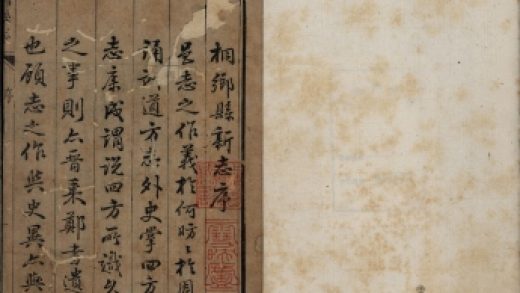 桐鄉縣新志序
是志之作義於何昉昉於周
誦訓道方志外史掌四方
志康成謂說四方所識久
之事則亦晉乘鄭書遺
也顧志之作與史異亦與
序